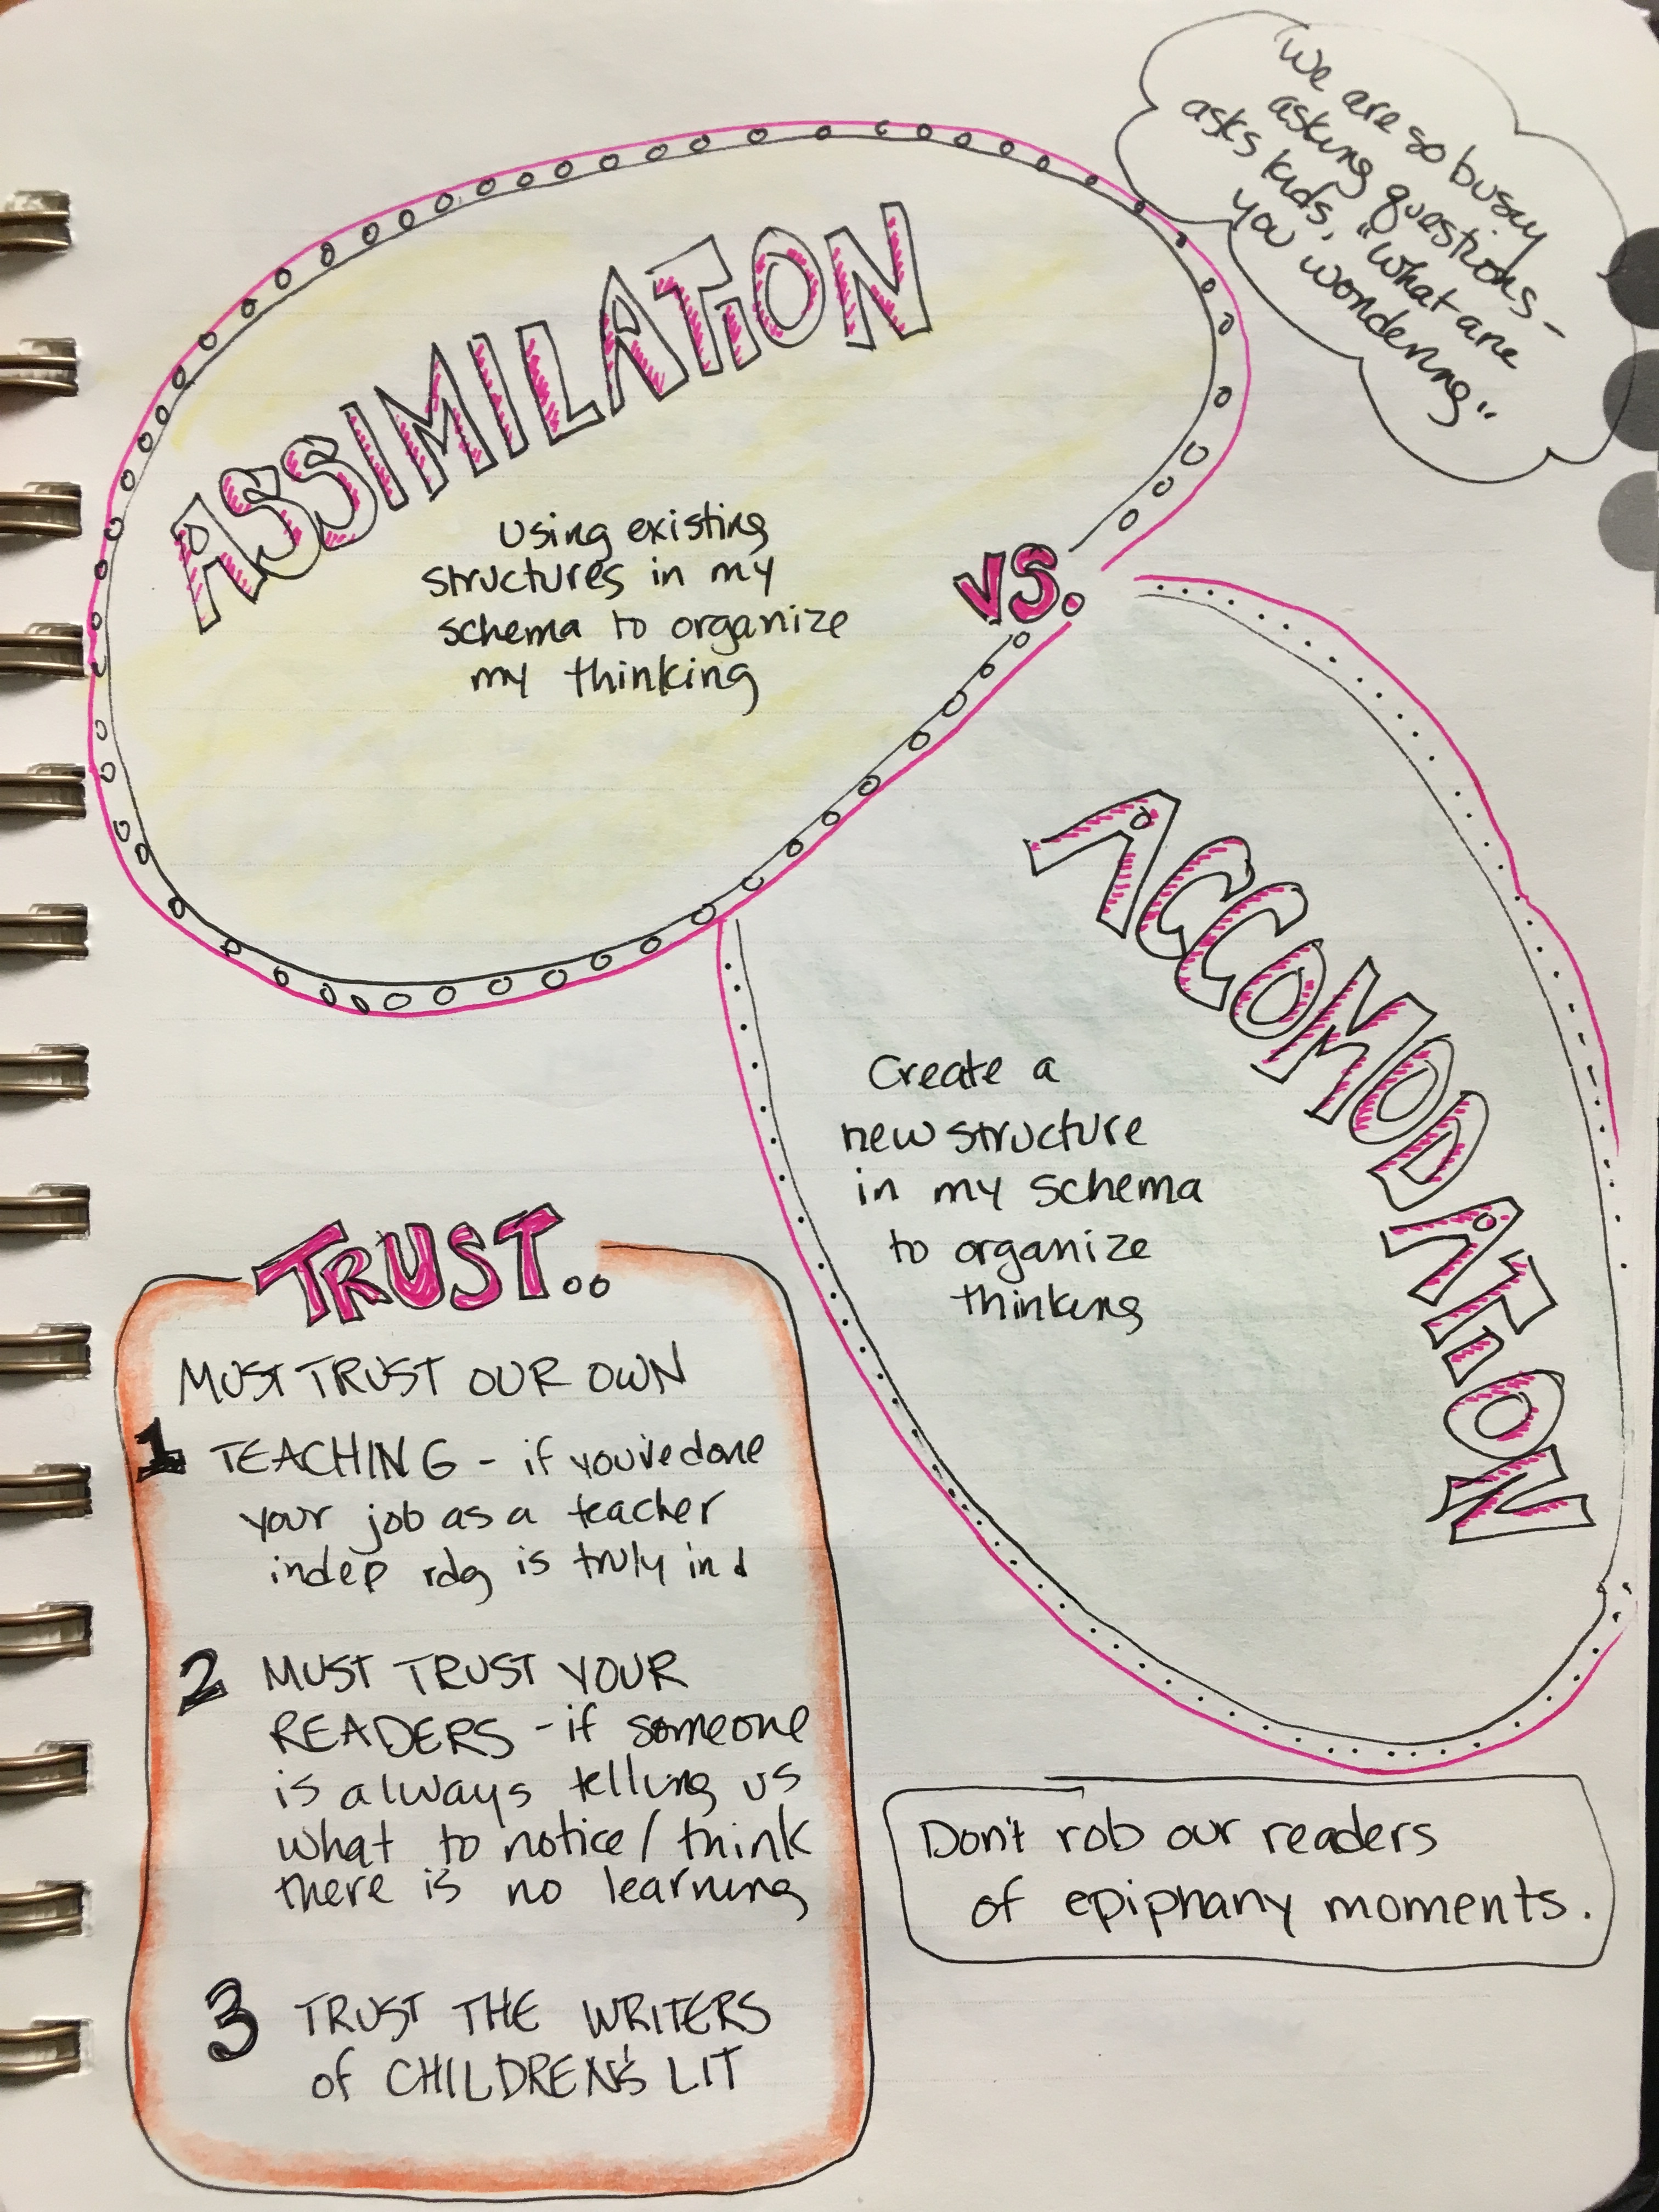 We are so busy
asking questions -
asks kids, "what are
you wondering"
ASSIMILATION
Using existing
structures in my
schema to organize
my thinking
VS.
ACCOMODATION
Create a
new structure
in my schema
to organize
thinking
TRUST..
MUST TRUST OUR OWN
1 TEACHING - if you've done
your job as a teacher
indep rdg is truly ind
2 MUST TRUST YOUR
READERS - if someone
is always telling us
what to notice/think
there is no learning
3 TRUST THE WRITERS
of CHILDREN'S LIT
Don't rob our readers
of epiphany moments.